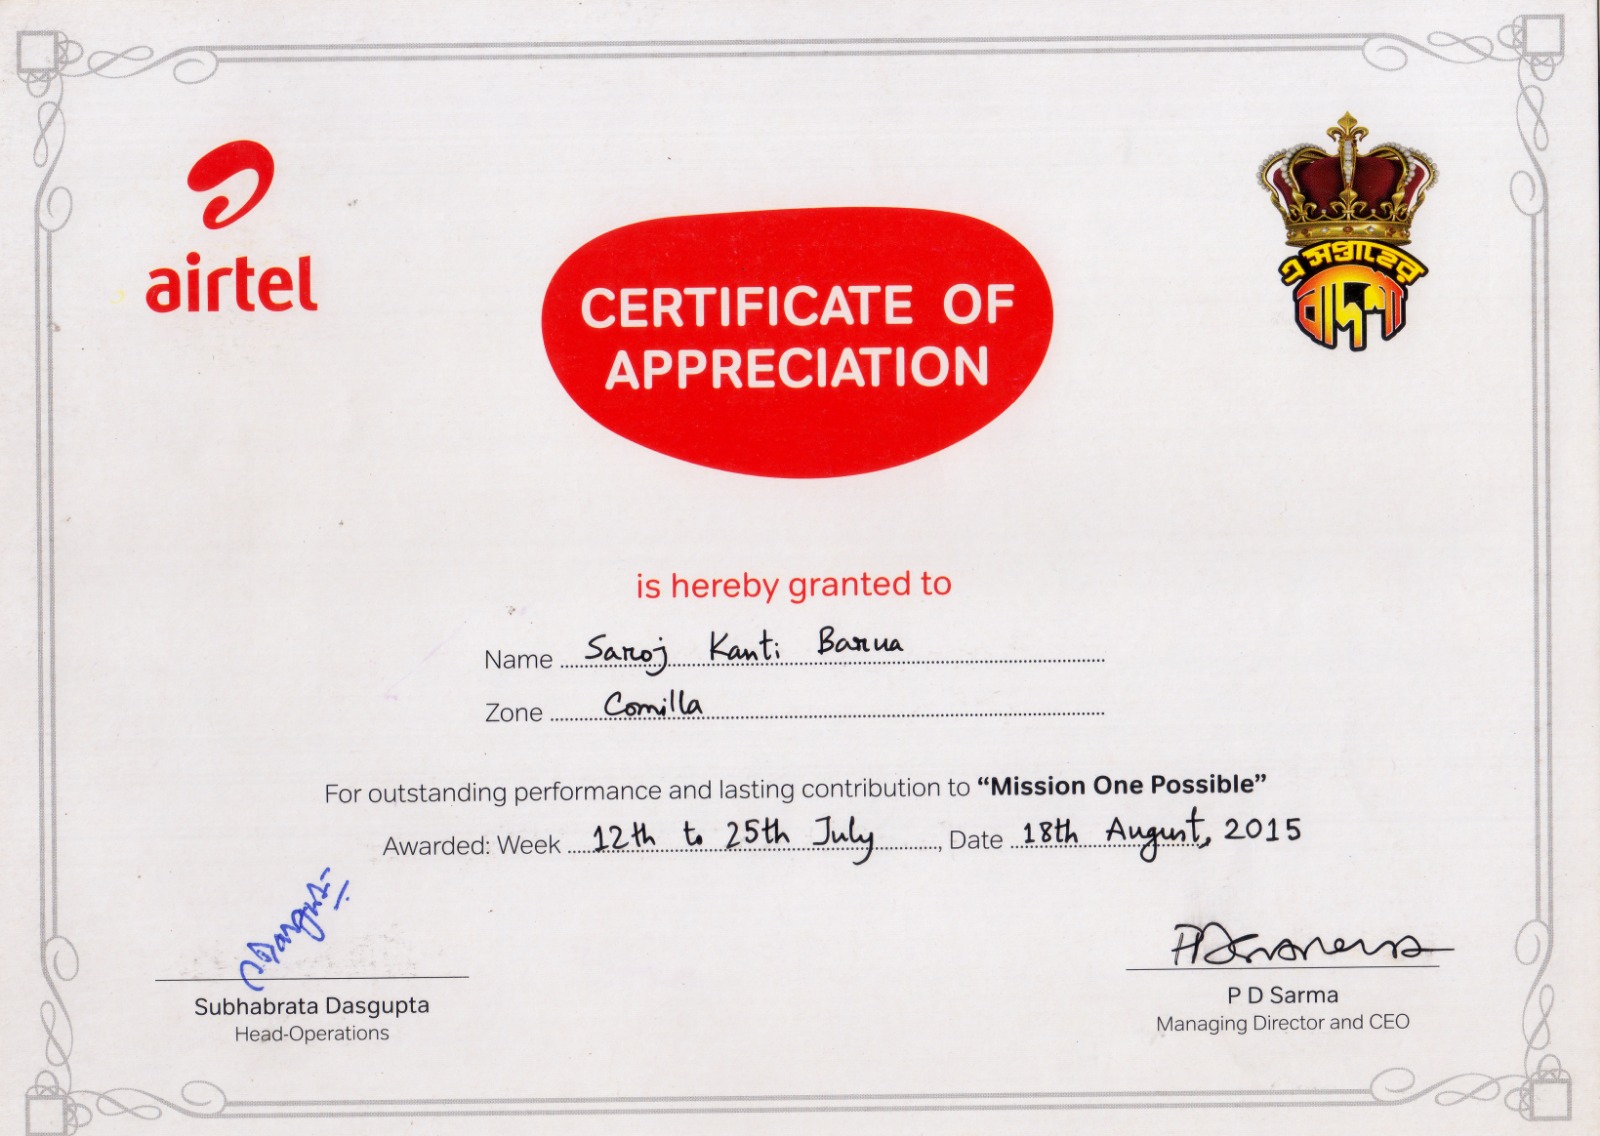 airtel
এ সপ্তাহের
বাদশা
CERTIFICATE OF
APPRECIATION
is hereby granted to
Name Saroj Kanti Barua
Zone Comilla
For outstanding performance and lasting contribution to “Mission One Possible”
Awarded: Week 12th to 25th July, Date 18th August, 2015
Subhabrata Dasgupta
Head-Operations
P D Sarma
Managing Director and CEO